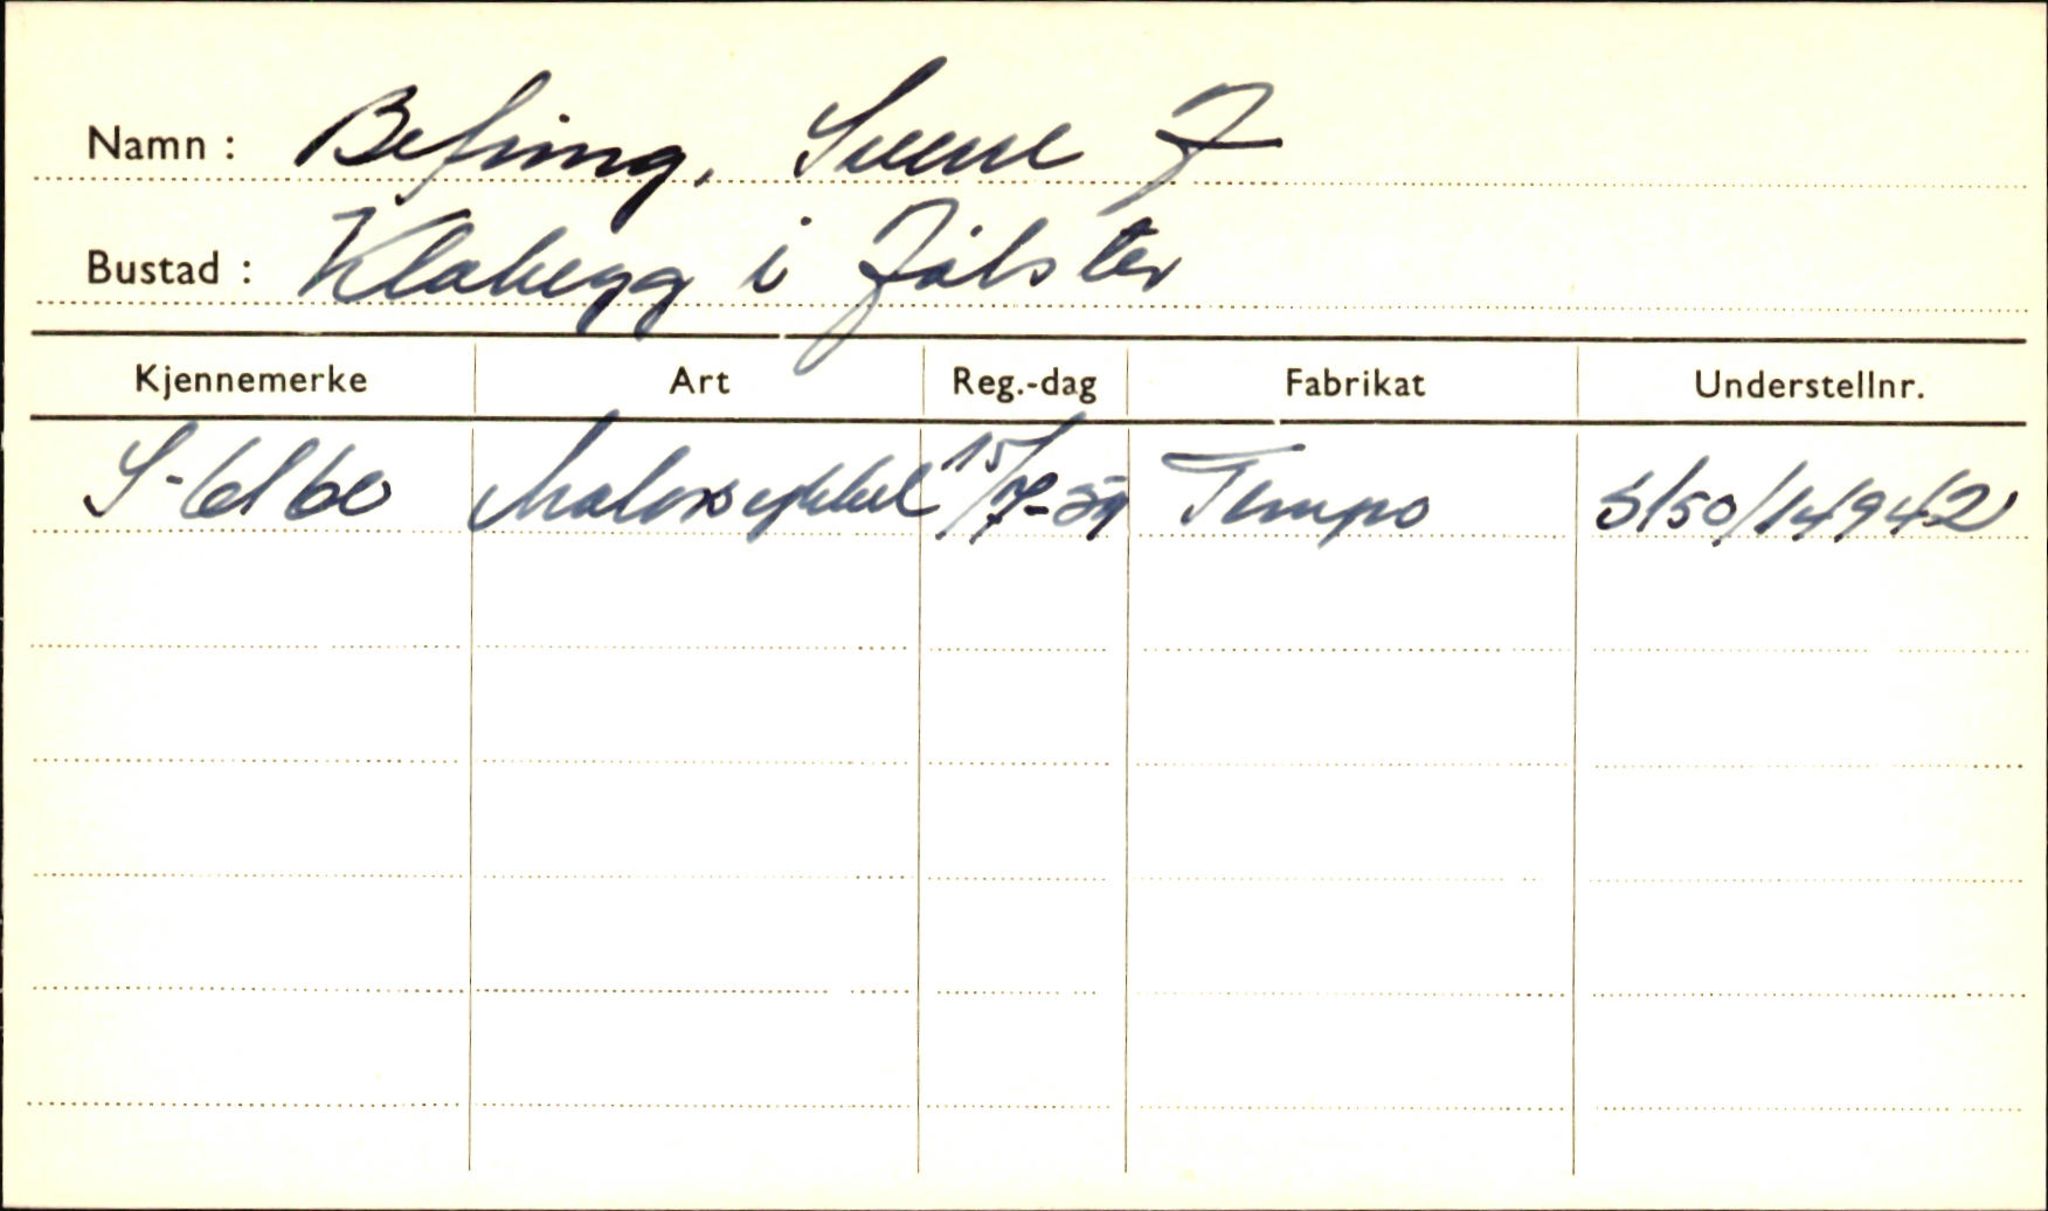 Namn : Befring, Sverre J
Bustad : Klakegg i Jølster
Kjennemerke Art Reg.-dag Fabrikat Understellnr.
S-6160 Motorsykkel 15/7-59 Tempo S/50/14942